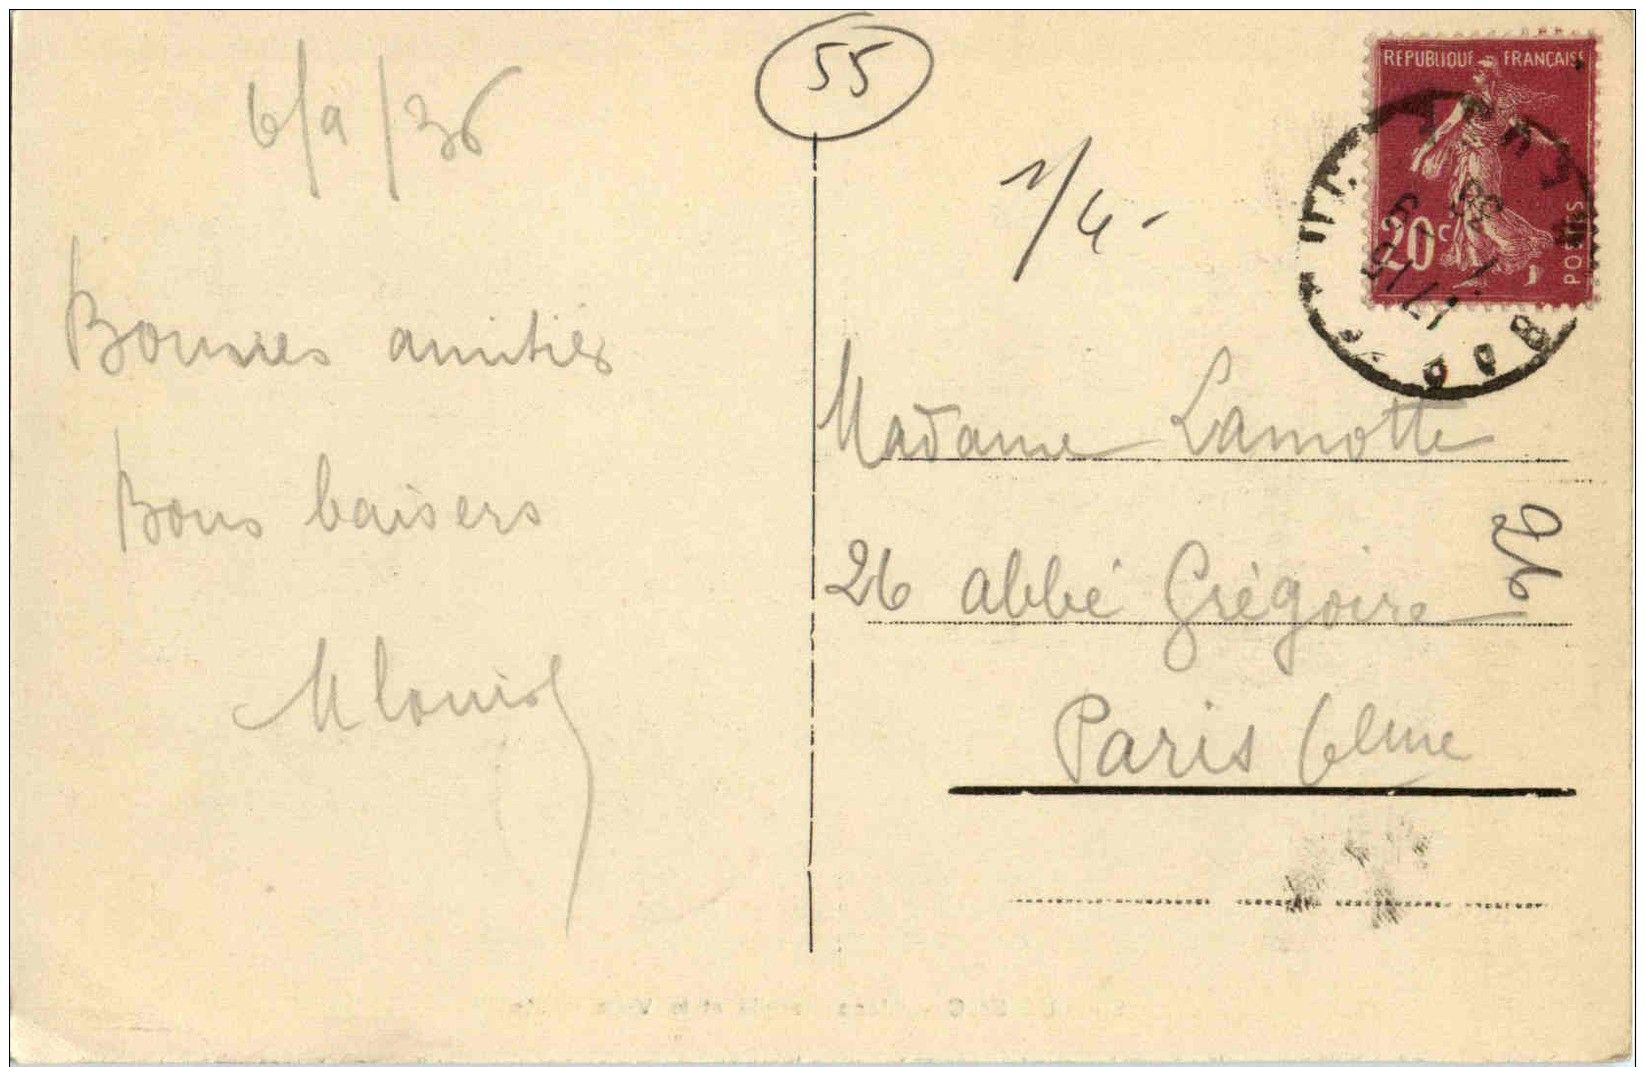 6/9/36
55
1/4-
REPUBLIQUE FRANÇAISE
20c
POSTES
Bonnes amitiés
Bons baisers
Mlouise
Madame Lamotte
26 abbé Grégoire
Paris 6eme